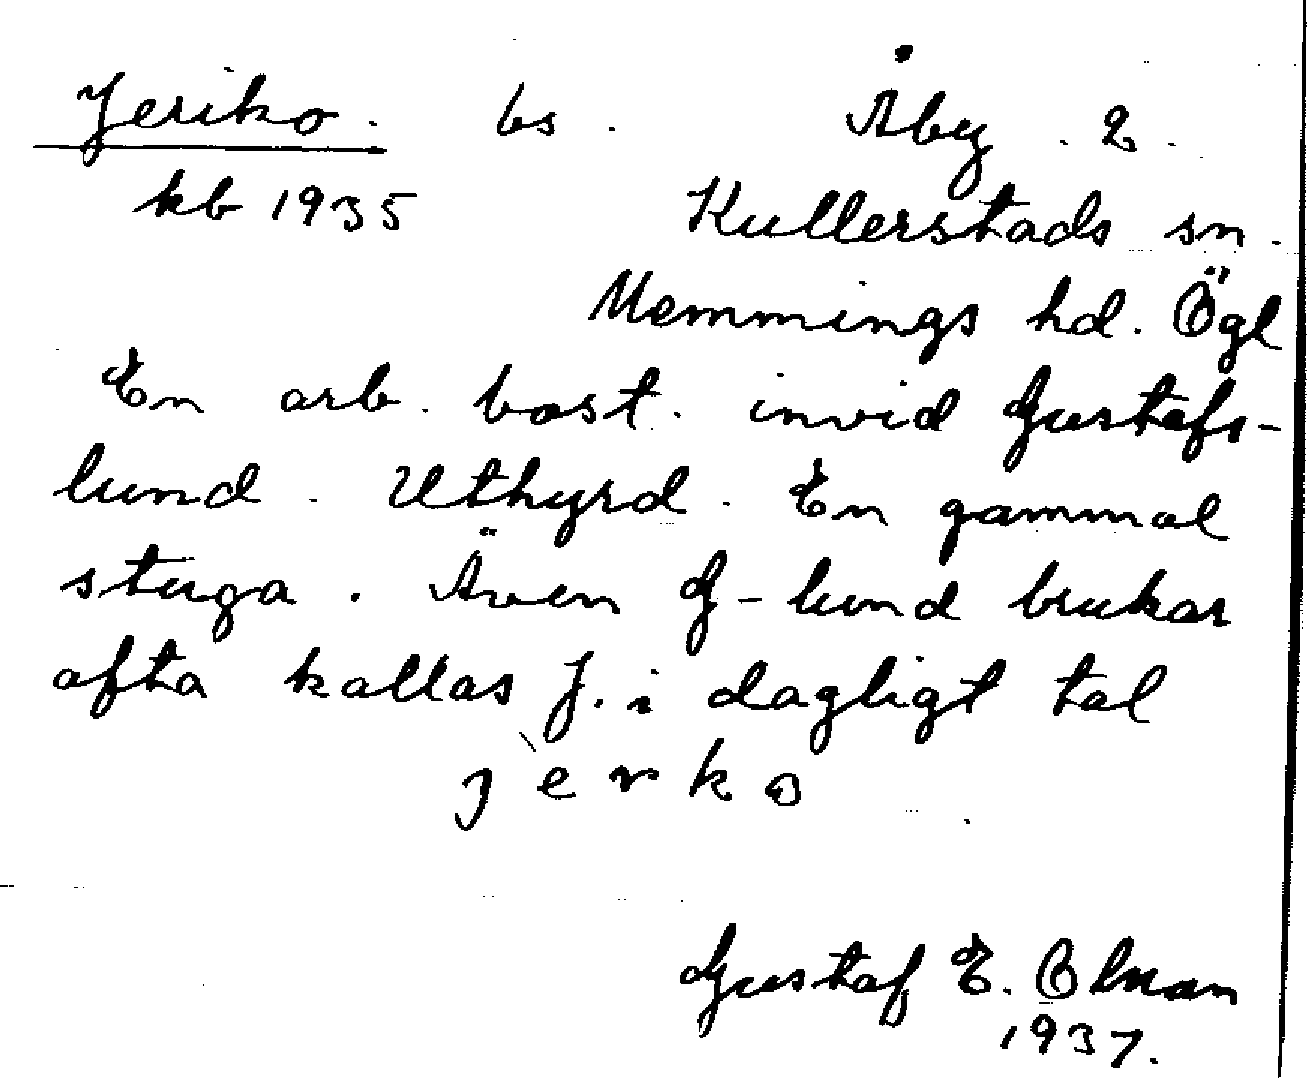 Jeriko. bs. Åby. 2.
kb 1935 Kullerstads sn.
Memmings hd. Ögl
En arb. bost. invid Gustafs-
lund. Uthyrd. En gammal
stuga. Även G-lund brukar
ofta kallas J. i dagligt tal
jèrko
Gustaf E. Olman
1937.